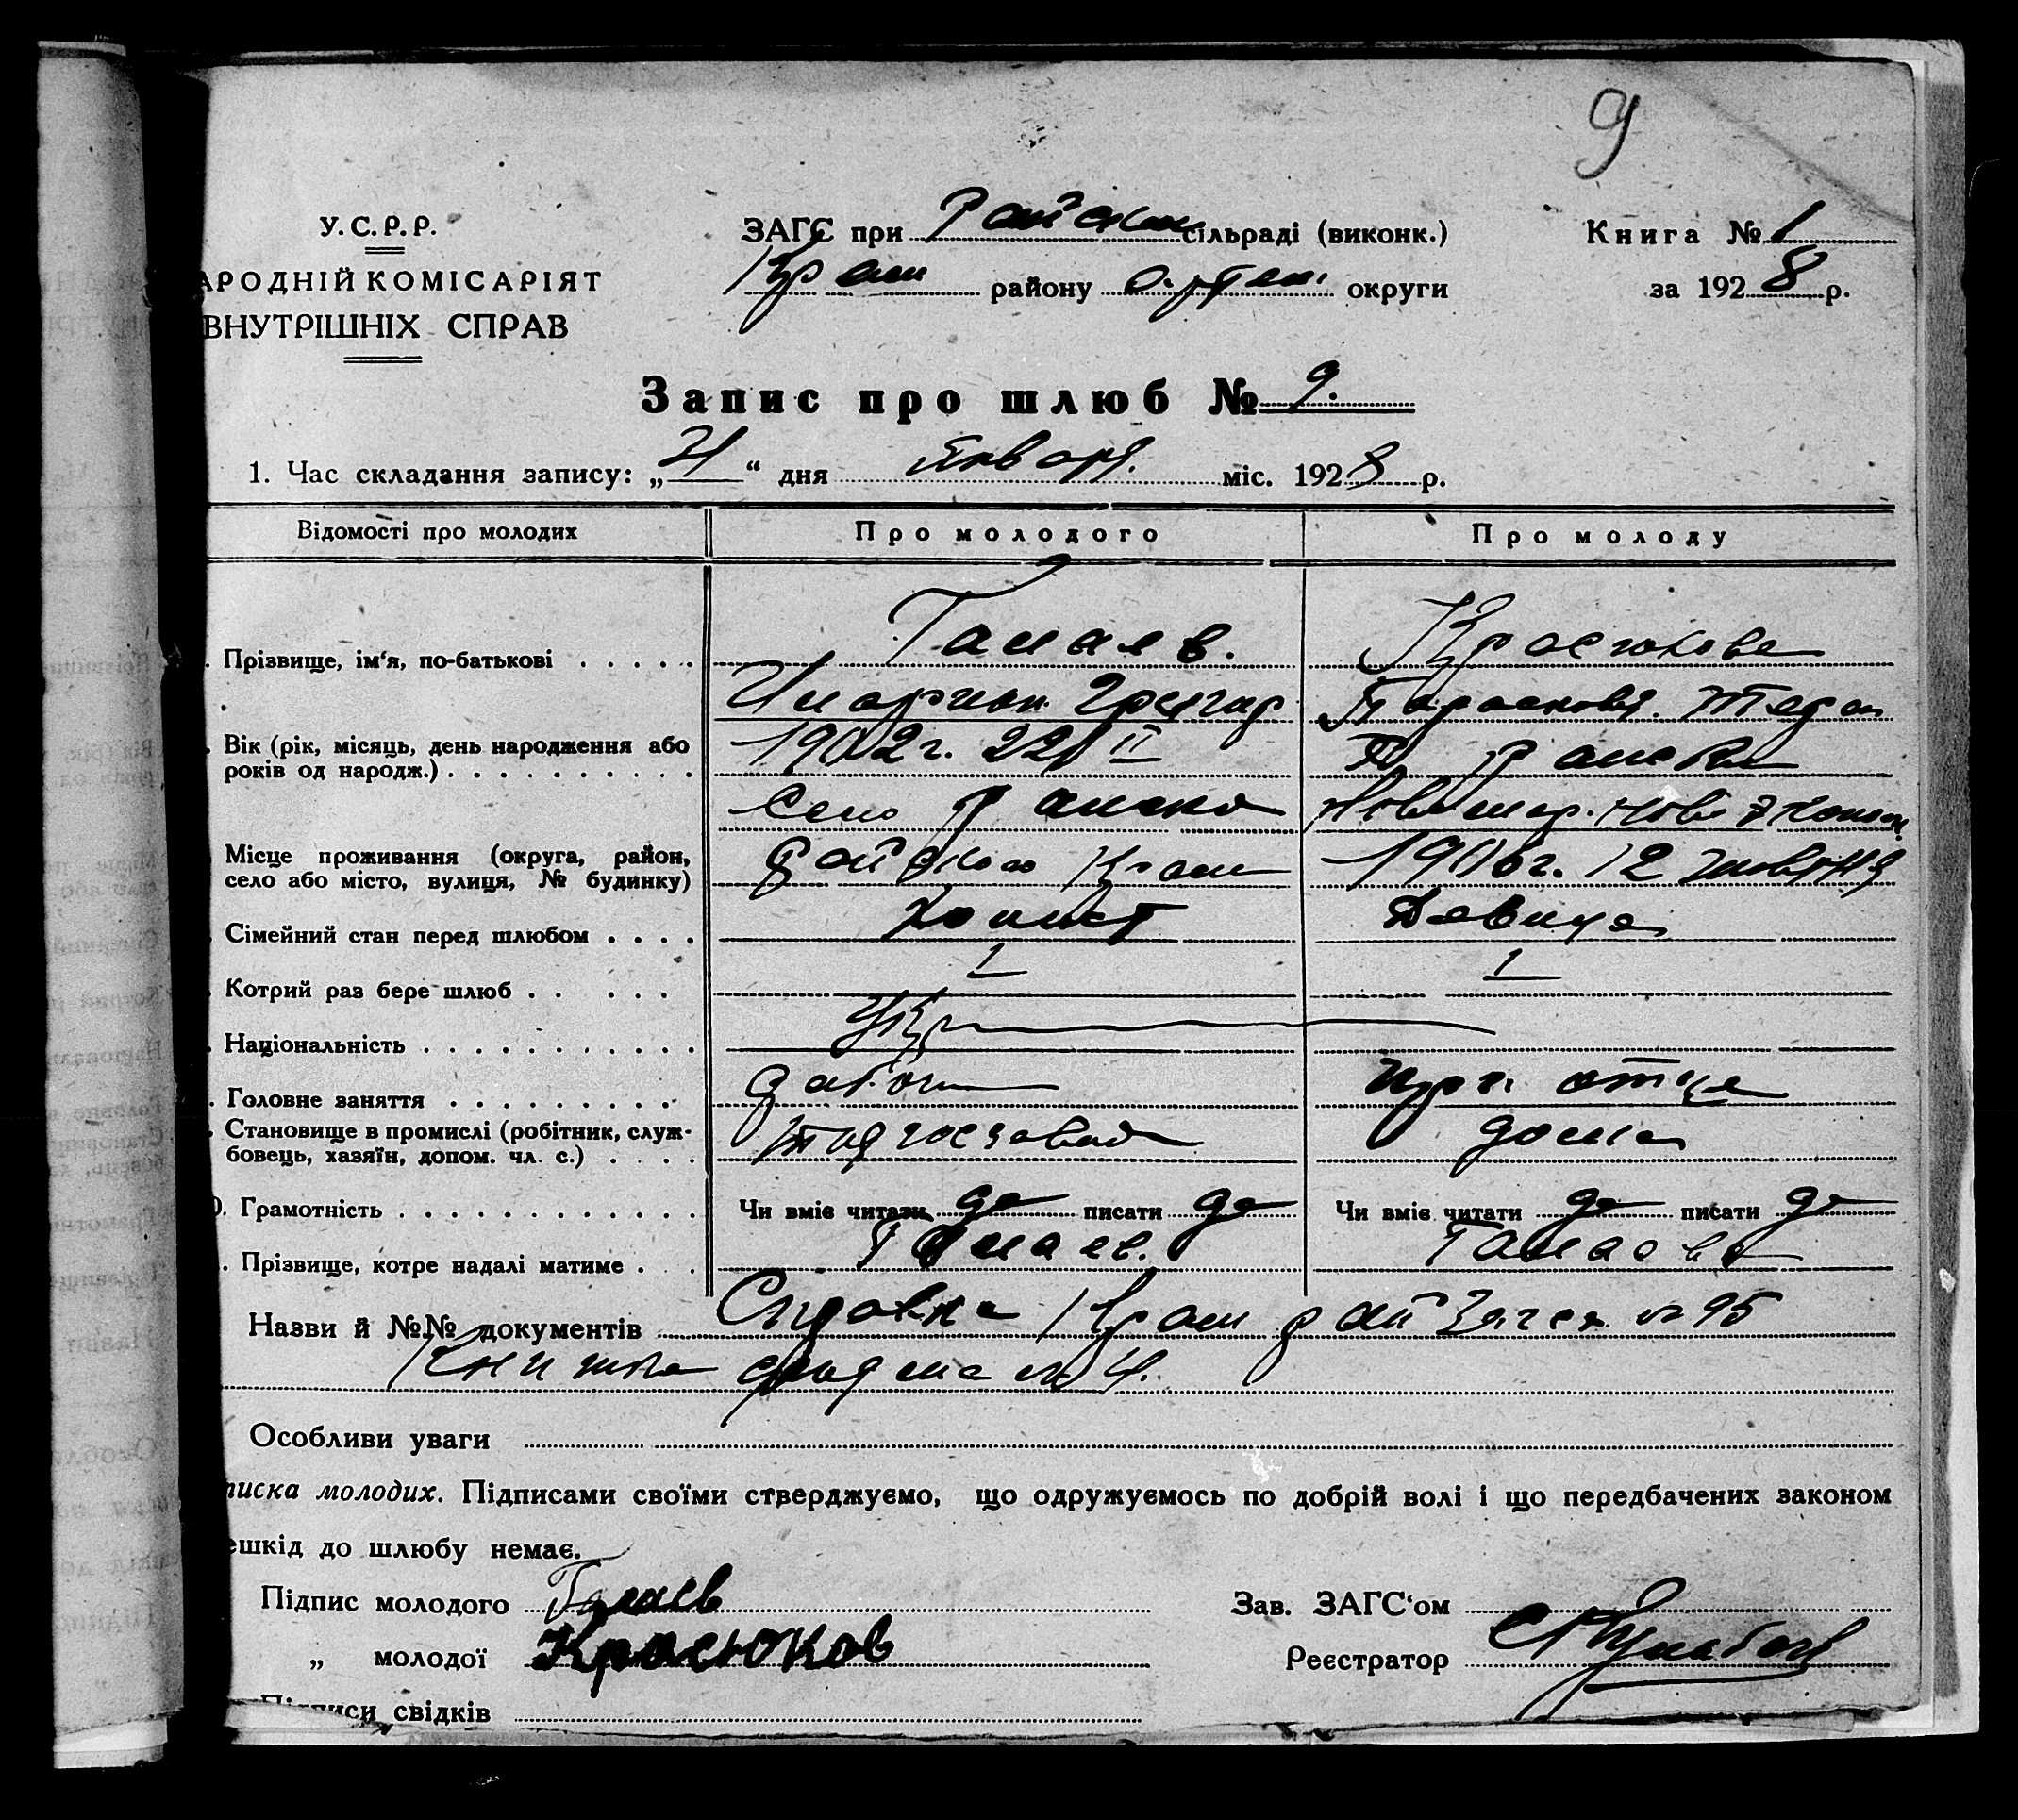 9
У.С.Р.Р.
АРОДНІЙ КОМІСАРІЯТ
ВНУТРІШНІХ СПРАВ
ЗАГС при Райском сільраді (виконк.)
Крам району Артем. округи
Книга № 1
за 1928 р.
Запис про шлюб № 9.
1. Час складання запису: „21“ дня Января. міс. 1928 р.
Відомості про молодих
Про молодого
Про молоду
Прізвище, ім‘я, по-батькові
Гамаев.
Григор
Красюкова
Парасковя. Федор
Вік (рік, місяць, день народження або
років од народж.)
1902 г. 22/II
Село Райско
1906 г. 12
Місце проживання (округа, район,
село або місто, вулиця, № будинку)
Райском Крам
Сімейний стан перед шлюбом
Холост
Девица
Котрий раз бере шлюб
1
1
Національність
Укр
Головне заняття
рабоч
при отце
Становище в промислі (робітник, служ-
бовець, хазяїн, допом. чл. с.)
дома
0. Грамотність
Чи вміє читати да писати да
Чи вміє читати да писати да
Прізвище, котре надалі матиме
Гамаев.
Гамаева
Назви й №№ документів Справка Крам рай Загса № 95
Книжка № 4.
Особливи уваги
писка молодих. Підписами своїми стверджуємо, що одружуємось по добрій волі і що передбачених законом
ешкід до шлюбу немає.
Підпис молодого Гамаев
„ молодої Красюков
Зав. ЗАГС‘ом
Реєстратор
Підписи свідків